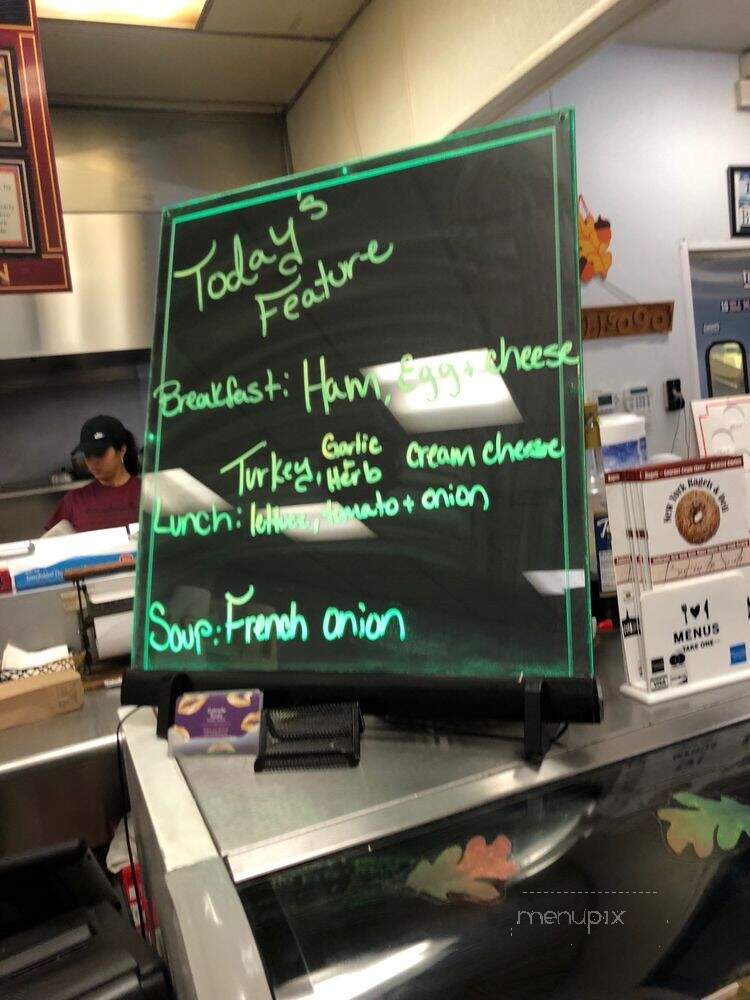 Today's
Feature
Breakfast: Ham, Egg + cheese
Turkey, Garlic Herb cream cheese
Lunch: lettuce, tomato + onion
Soup: French onion
New York Bagels & Deli
MENUS
TAKE ONE
VISA
menupix